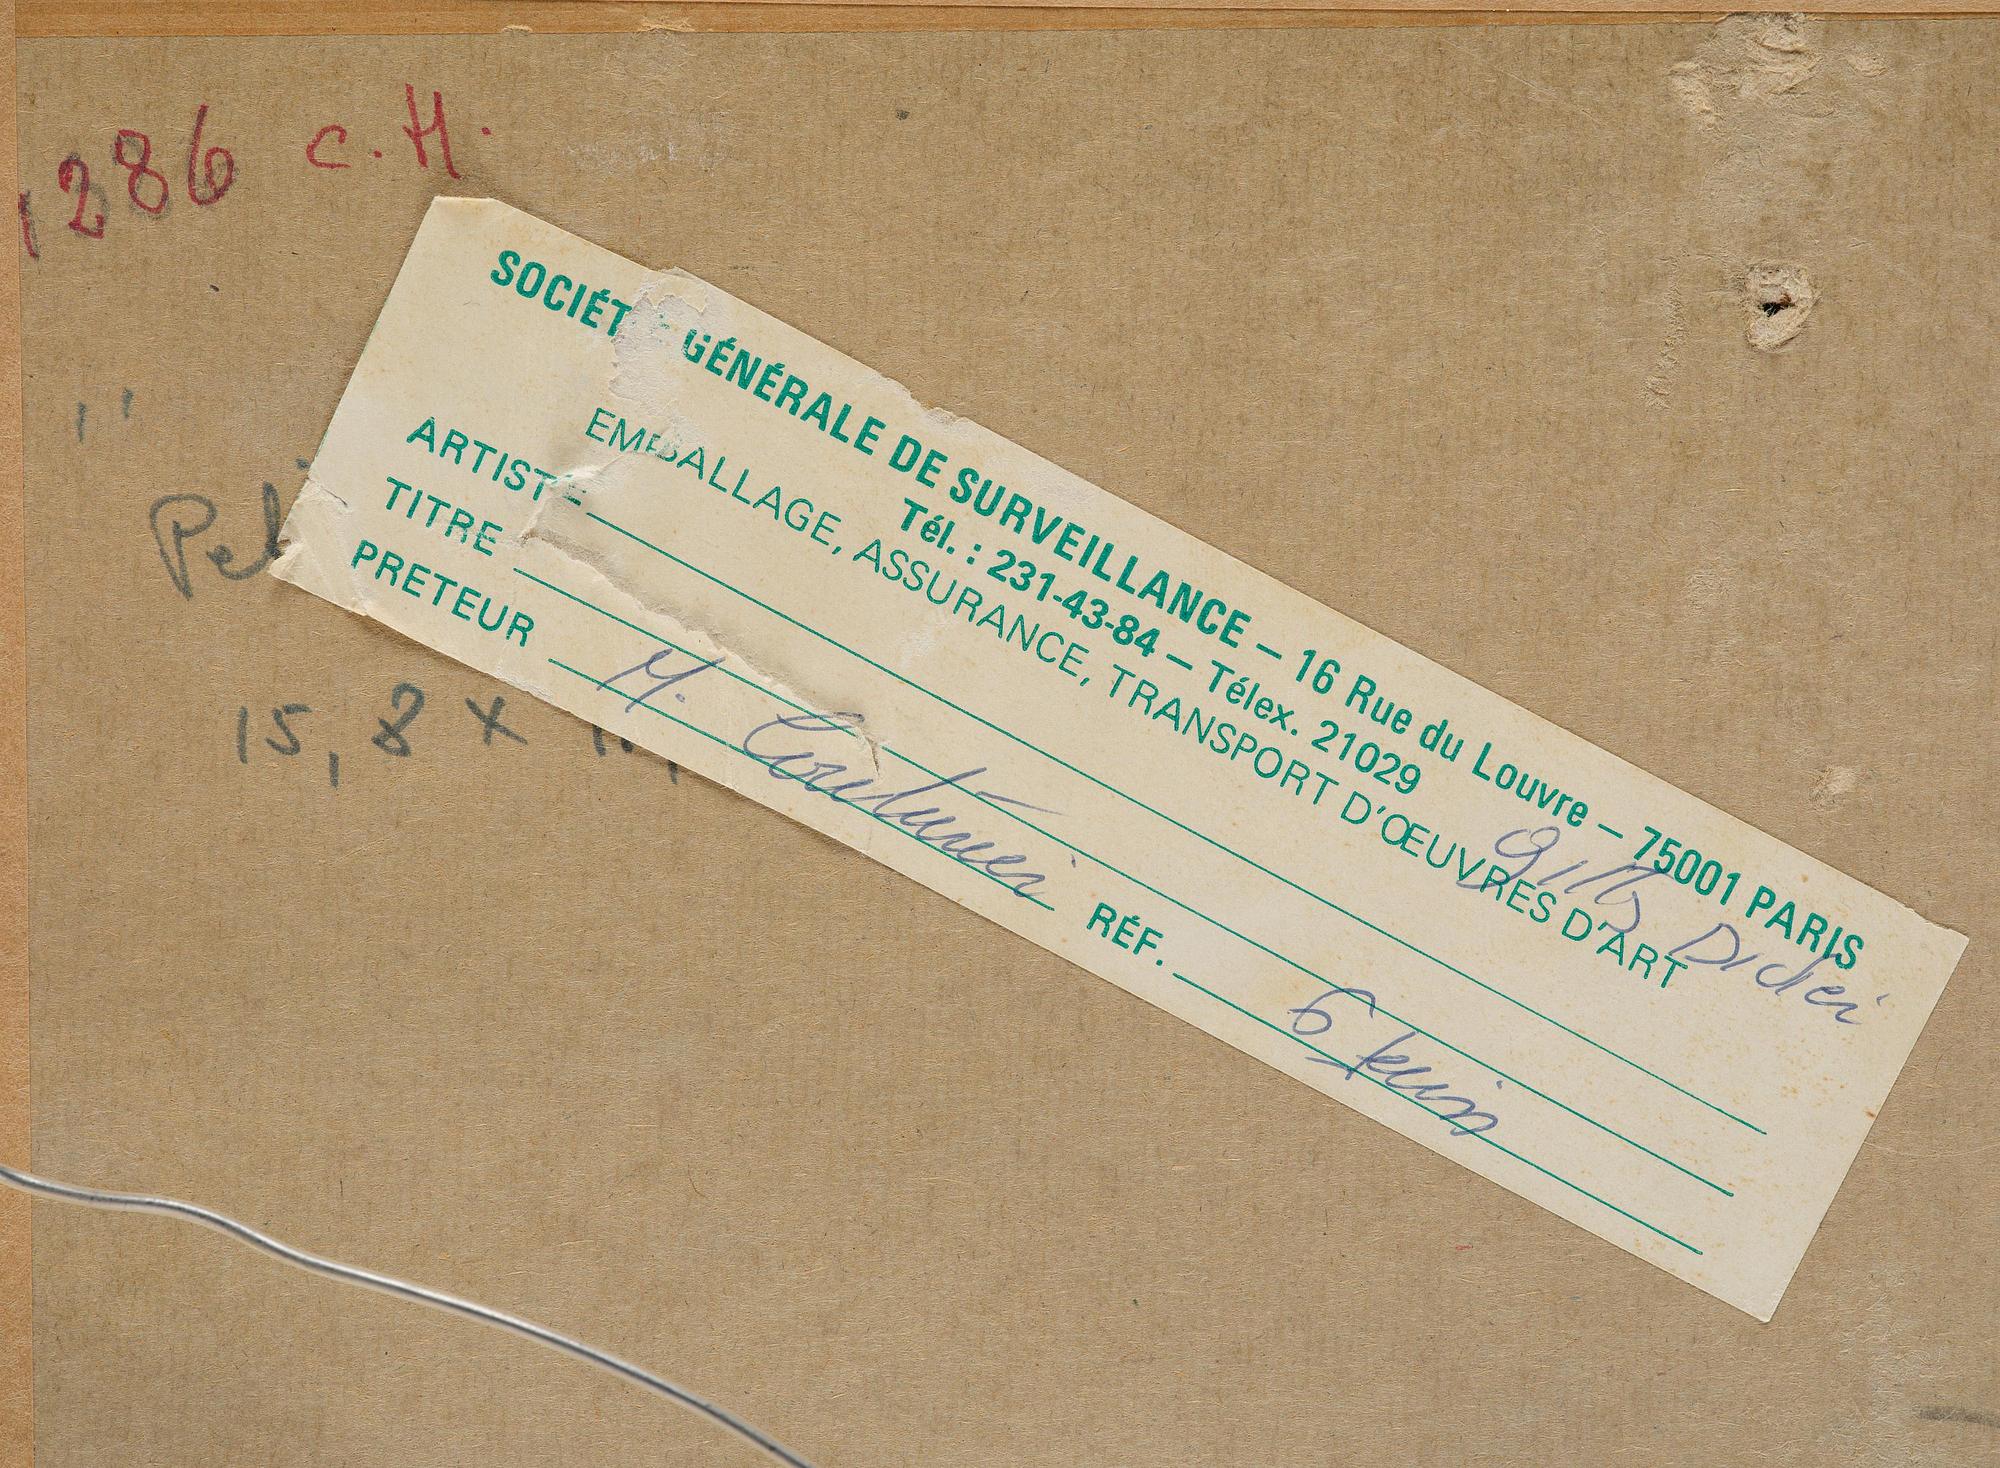 1286 C.H.
"
SOCIÉTÉ GÉNÉRALE DE SURVEILLANCE – 16 Rue du Louvre – 75001 PARIS
Tél. : 231-43-84 – Télex. 21029
EMBALLAGE, ASSURANCE, TRANSPORT D'ŒUVRES D'ART
Didier
ARTISTE
TITRE
PRETEUR M. Couturier RÉF. 6
15,8 x